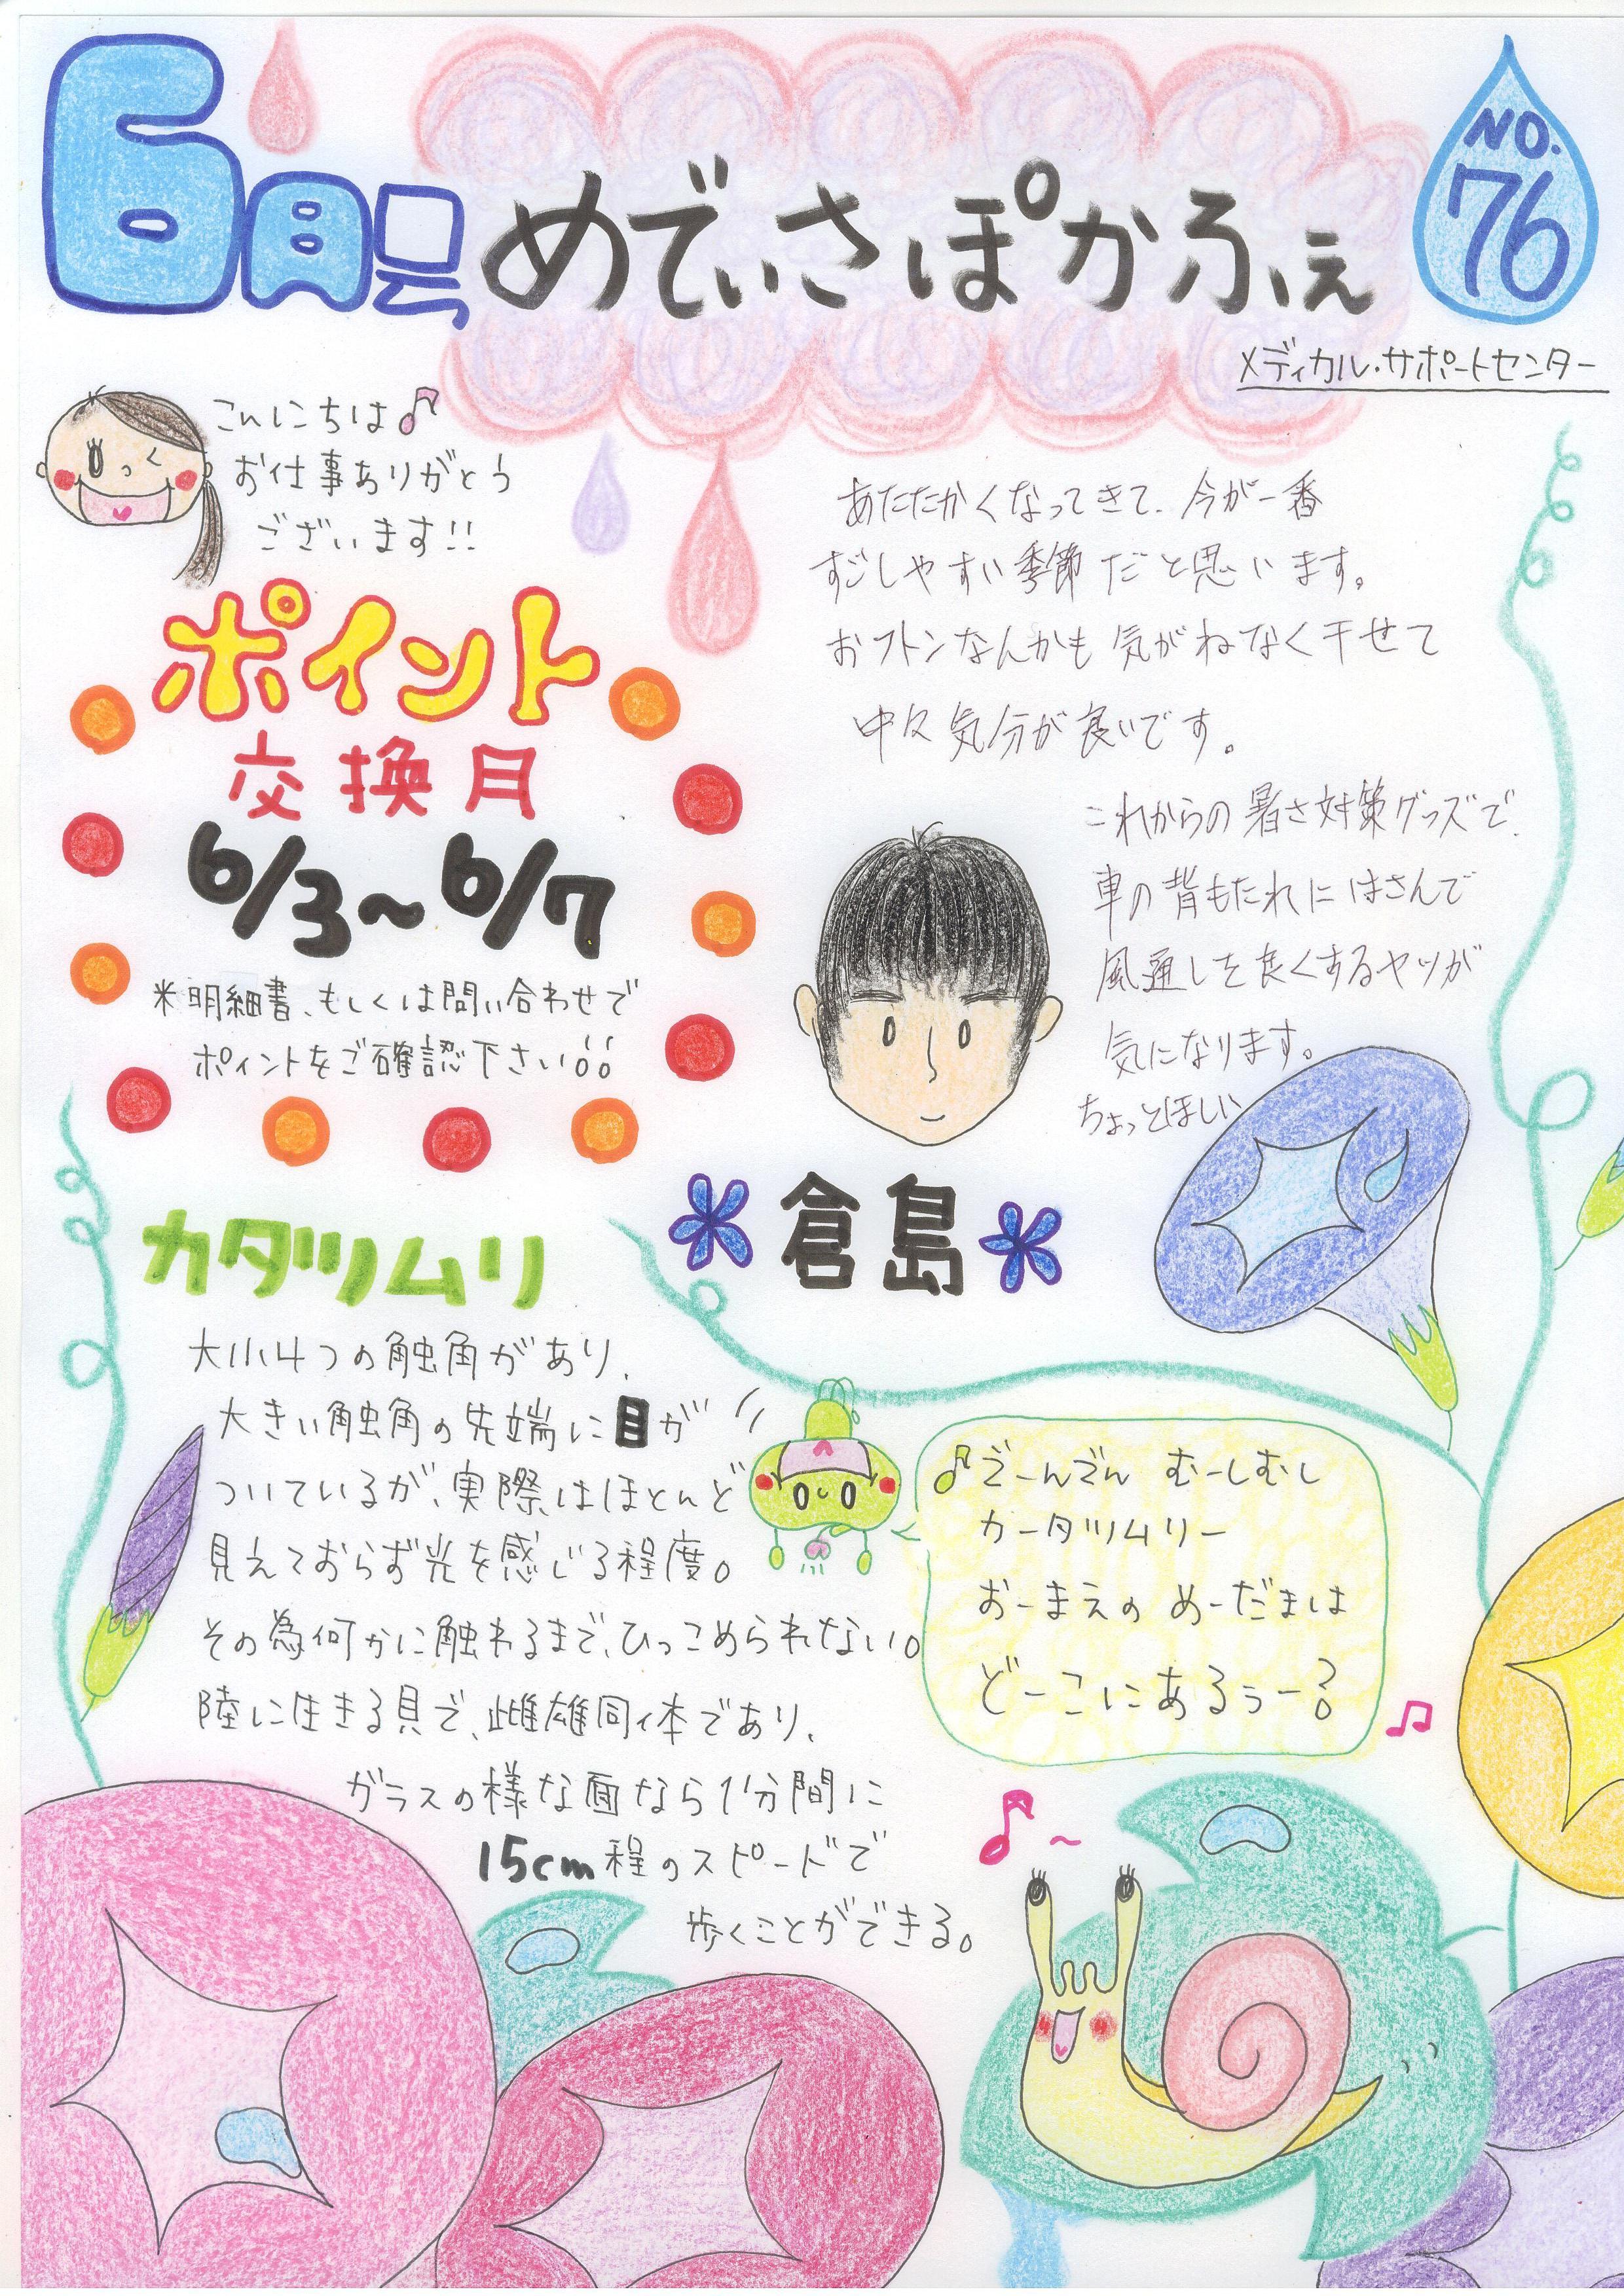 6月号
めでぃさぽかふぇ
NO.
76
メディカル・サポートセンター
こんにちは♪
お仕事ありがとう
ございます!!
ポイント
交換月
6/3～6/7
※明細書、もしくは問い合わせで
ポイントをご確認下さい!!
あたたかくなってきて、今が一番
すごしやすい季節だと思います。
おフトンなんかも気がねなく干せて
中々気分が良いです。
これからの暑さ対策グッズで、
車の背もたれにはさんで
風通しを良くするヤツが
気になります。
ちょっとほしい
倉島
カタツムリ
大小4つの触角があり、
大きい触角の先端に目が
ついているが、実際はほとんど
見えておらず光を感じる程度。
その為何かに触わるまで、ひっこめられない。
陸に生きる貝で、雌雄同体であり、
ガラスの様な面なら1分間に
15cm程のスピードで
歩くことができる。
♪でーんでん むーしむし
カータツムリー
おーまえの めーだまは
どーこにあるぅー?